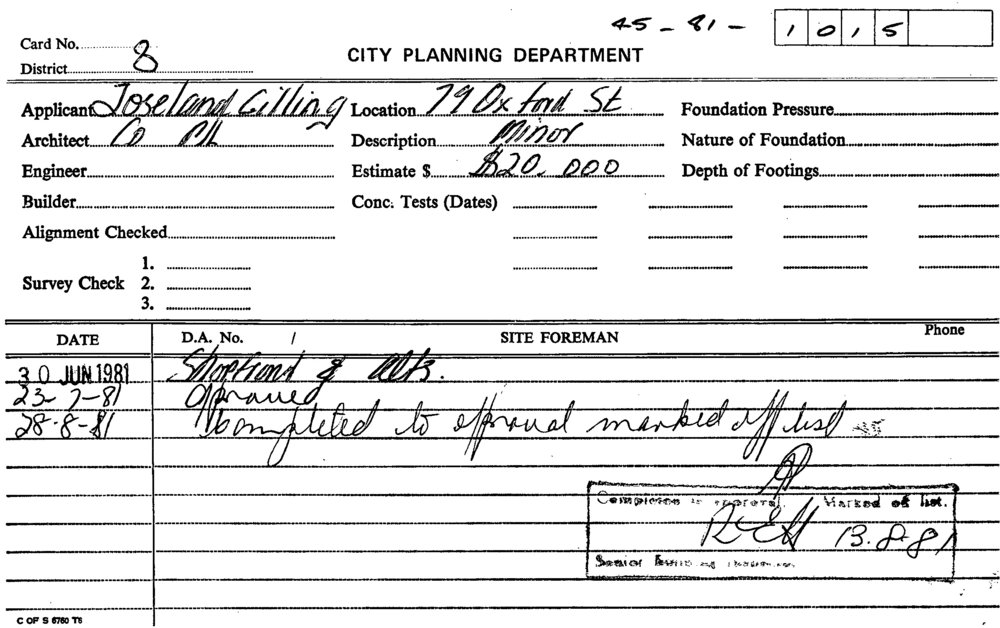 45-81- 1015
Card No.
District 8
CITY PLANNING DEPARTMENT
Applicant Joseland Gilling Location 79 Oxford St Foundation Pressure
Architect Description Minor Nature of Foundation
Engineer Estimate $ $20,000 Depth of Footings
Builder Conc. Tests (Dates)
Alignment Checked
1.
Survey Check 2.
3.
DATE D.A. No. / SITE FOREMAN Phone
30 JUN 1981 Shopfront & alts.
23-7-81 approved
28-8-81 Completed to approval marked off list
Completed to approval. Marked of list.
REH 13.8.81
Senior Building
C OF S 6760 T6